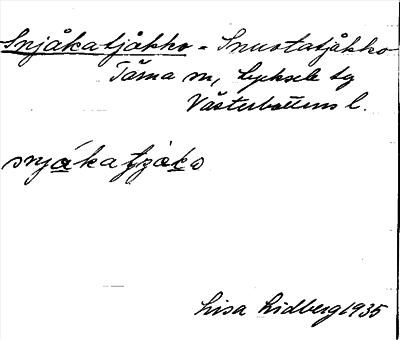 Snjåkatjåkko = Snustatjåkko
Tärna sn, Lycksele tg
Västerbottens l.
snjåkatjåko
Lisa Lidberg 1935